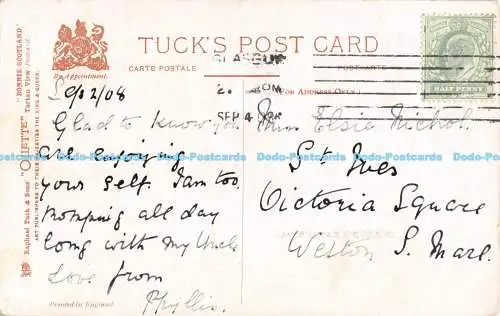 TUCK'S POST CARD
CARTE POSTALE
POSTKARTE
By Appointment.
(FOR ADDRESS ONLY.)
HALF PENNY
GLASGOW
SEP 4
2/08
Glad to know you
are enjoying
your self. I am too
romping all day
long with my Uncle
Love from
Phyllis.
Miss Elsie Nichol
St Ives
Victoria Square
Weston S. Mare.
Printed in England
Raphael Tuck & Sons' "OILETTE"
"BONNIE SCOTLAND"
ART PUBLISHERS TO THEIR MAJESTIES THE KING & QUEEN.
Dodo-Postcards Dodo-Postcards Dodo-Postcards Dodo-Postcards Dodo-Postcards